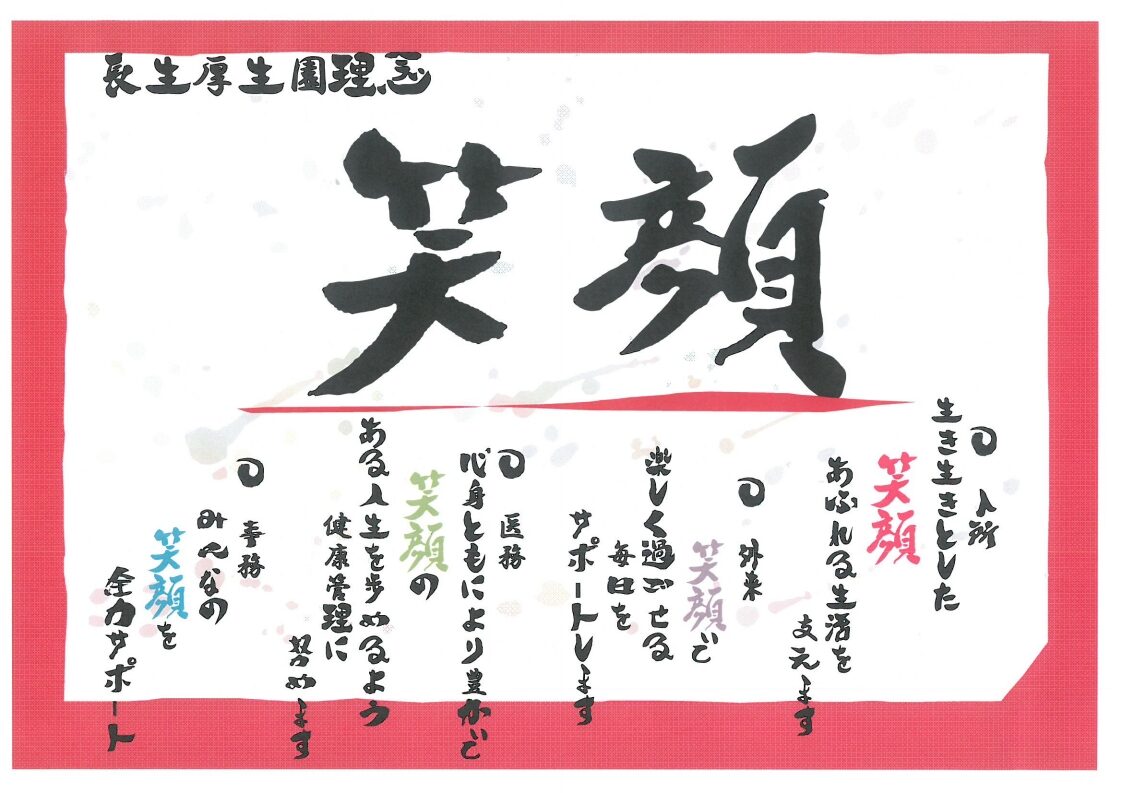 長生厚生園理念
笑顔
入所
生き生きとした
笑顔
あふれる生活を
支えます
外来
笑顔で
楽しく過ごせる
毎日を
サポートします
医務
心身ともにより豊かで
笑顔の
ある人生を歩めるよう
健康管理に
努めます
事務
みんなの
笑顔を
全力サポート